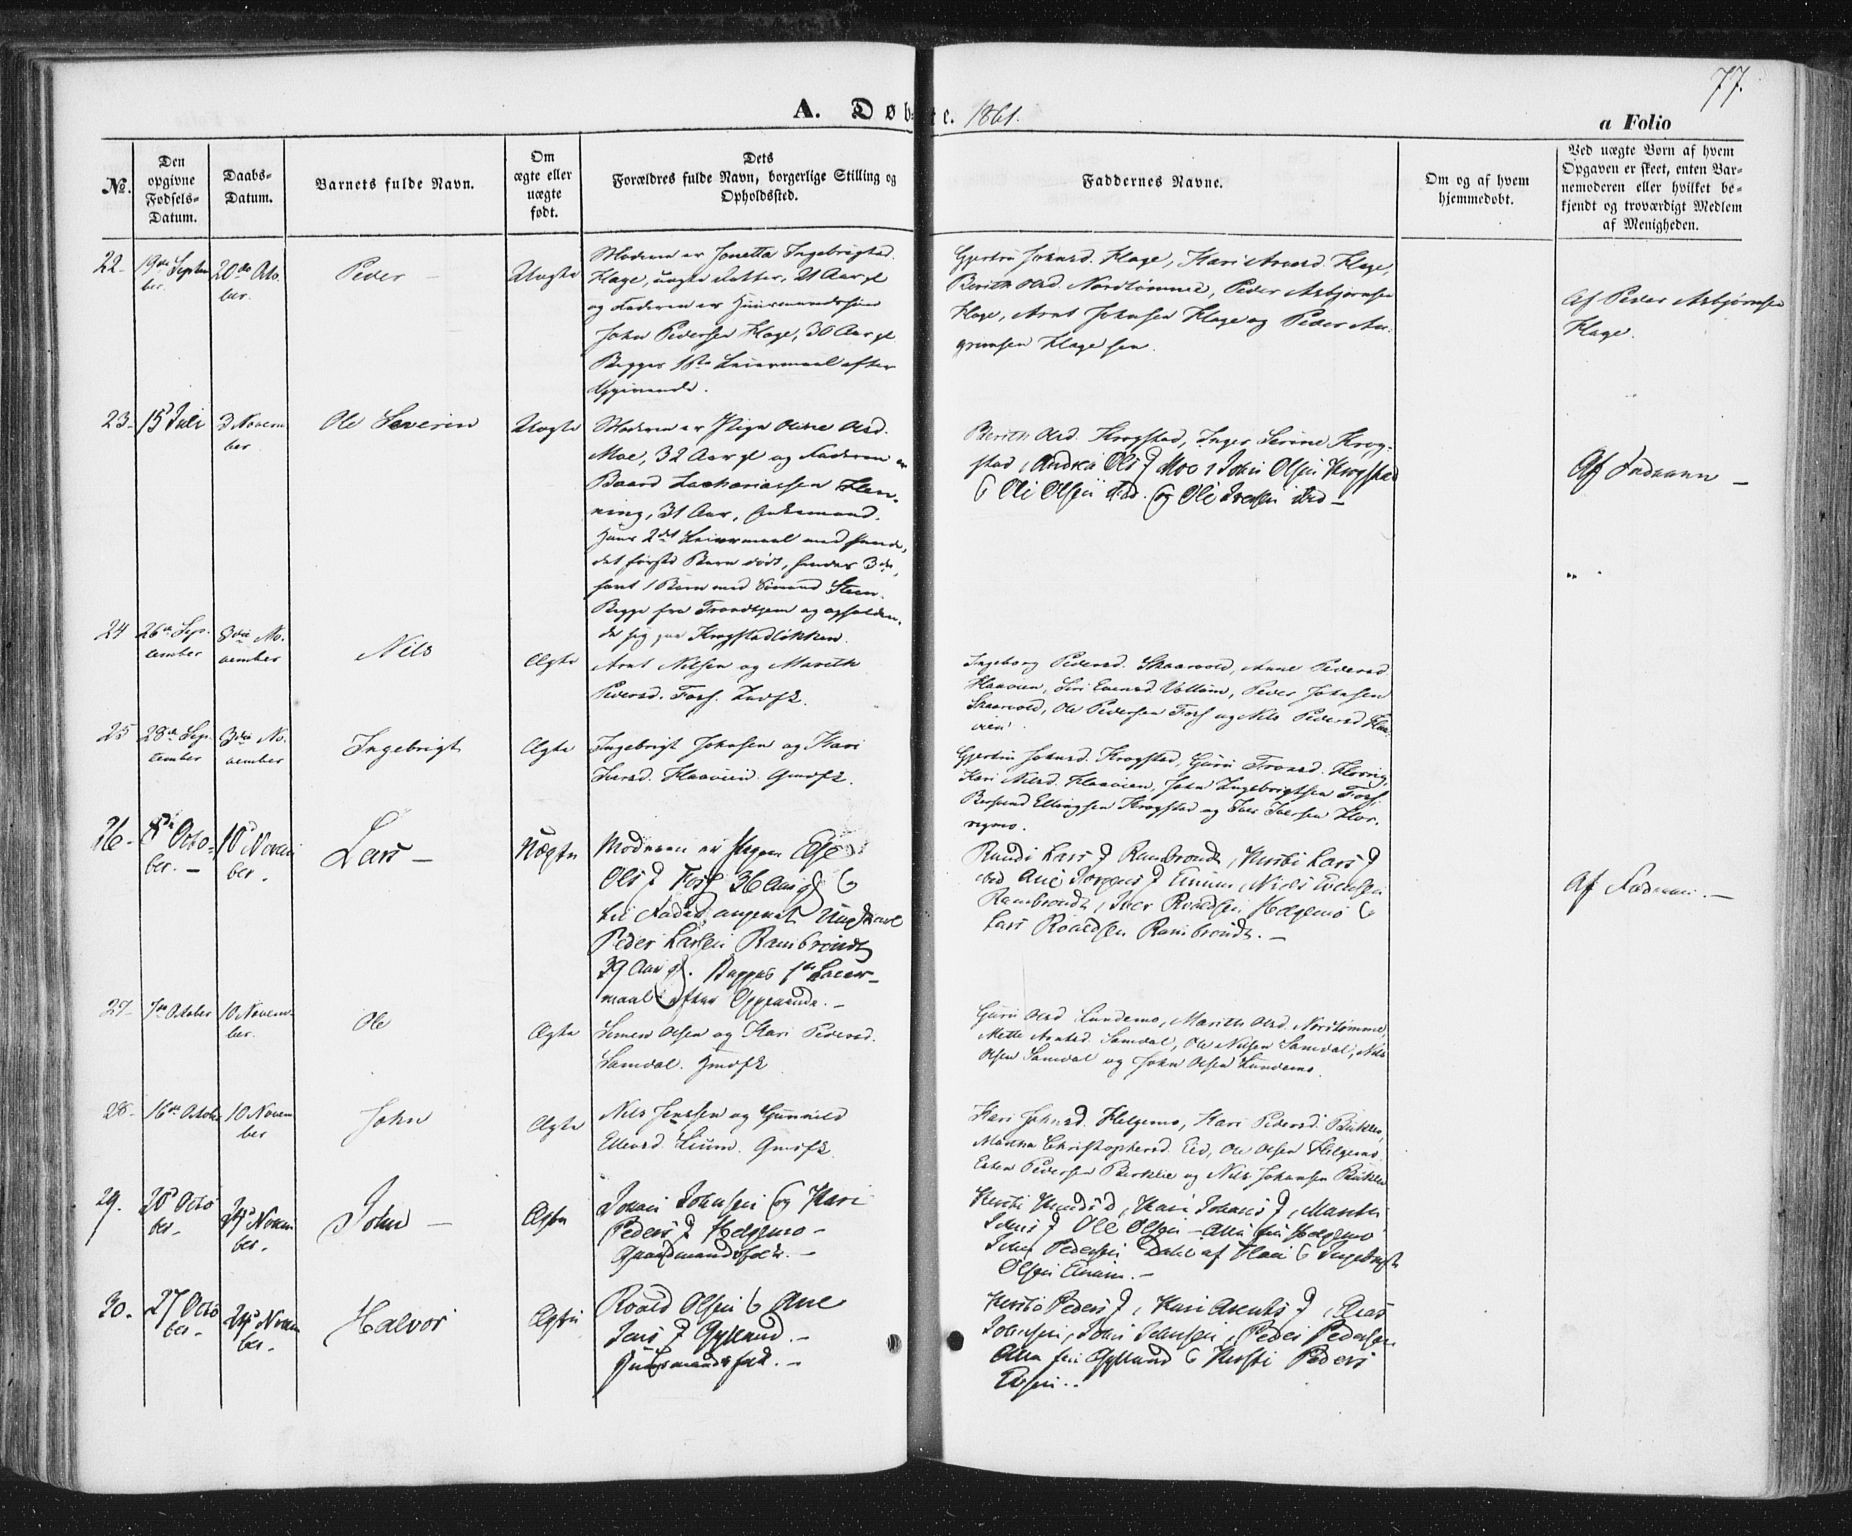 77.
A. Døbte. 1861.
a Folio
No.
Den opgivne Fødsels-Datum.
Daabs-Datum.
Barnets fulde Navn.
Om ægte eller uægte født.
Dets Forældres fulde Navn, borgerlige Stilling og Opholdssted.
Faddernes Navne.
Om og af hvem hjemmedøbt.
Ved uægte Børn af hvem Opgaven er skeet, enten Barnemoderen eller hvilket bekjendt og troværdigt Medlem af Menigheden.
22. 19de Septem
ber.
20de Octo
ber.
Peder
Uægte
Moderen er Jonetta Ingebrigtsd.
Flage, ugift Datter, 21 Aar gl
og Faderen er Huusmandssøn
John Pedersen Flage, 30 Aar gl
Begges 1ste Leiermaal efter
Opgivende.
Gjertru Johnsd. Flage, Kari Arnsd. Flage,
Berith Olsd. Nordtømme, Peder Asbjørnsen
Flage, Arnt Johnsen Flage og Peder
Flage
Af Peder Asbjørnsen
Flage.
23. 15 Juli
3 Novem
ber
Ole Severin
Uægte
Moderen er Pige Oline Olsd.
Moe, 32 Aar gl og Faderen er
Baard Zachariassen Flen
ning, 31 Aar, Enkemand.
Hans 2det Leiermaal med hende,
det første Barn dødt, hendes 3de,
samt 1 Barn med
Begge fra Trondhjem og ophelden
de sig paa Krogstadløkken.
Berith Olsd. Krogstad, Inger Serine Krog-
stad, Andrea Olsd Moe, John Olsen Krogstad
Ole Olsen ibd. og Ole Iversen ibd
Af Faderen
24 26de Sep
tember
3die No
vember
Nils
Ægte
Arnt Nilsen og Marith
Pedersd. Fors. Indsk.
Ingeborg Pedersd. Skaarvold, Anne Pedersd
Haavien, Siri Evensd Volløiv, Peder Johnsen
Skaarvold, Ole Pedersen Fors og Nils Pedersd Haa
vien.
25 28de Sep
tember
3die No
vember
Ingebrigt
Ægte
Ingebrigt Johnsen og Kari
Iversd. Haavien. Gmdfk.
Gjertru Johnsd. Krogstad, Guru Trondsd.
Kari Nilsd. Haavien, John Ingebrigtsen Fors,
Bersvend Ellingsen Krogstad og Iver Iversen Flor
26. 8de Octo
ber.
10 Novem
ber.
Lars
Uægte
Moderen er Pigen
Olsd Fors 36 Aar gl
til Fader angivet Ungkarl
Peder Larsen Rambrondt
39 Aar gl. Begges 1ste Leier-
maal efter Opgivende.
Randi Larsd Rambrondt, Kirsti Larsd
ibd Ane Jørgensd Enum, Niels Evensen
Rambrondt, Iver Roaldsen Helgemo
Lars Roaldsen Rambrondt.
Af Faderen.
27. 7de October
10 Novem
ber.
Ole
Ægte
Simen Olsen og Kari Pedersd.
Samdal. Hmdfk
Guru Olsd Lundemo, Marith Olsd. Nordtømme,
Mette Arntsd. Samdal, Ole Nilsen Samdal, Nils
Olsen Samdal og John Olsen Lundemo.
28. 16de October
10 Novem
ber
John
Ægte
Nils Jenssen og Gunnild
Ellevsd. Lium. Gmdfk.
Kari Johnsd. Helgemo, Kari Pedersd.
Martha Christophersd. Eid, Ole Olsen Helgemo
Esten Pedersen og Nils Johansen
29. 20 Octo
ber
24 Novem
ber.
John
Ægte
Johan Johnsen og Kari
Pedersd Helgemo
Gaardmandsfolk.
Kirsti, Kari Johnsd, Martha
Johnsd Ole Olsen Alle fra Helgemo
John Pedersen Dahl af Flaa Ingebrigt
Olsen Enum.
30. 27 Octo
ber
24 Novem
ber.
Halvor
Ægte
Roald Olsen Ane
Larsd Gylland.
Huusmandsfolk.
Kirsti Pedersd, Kari Arentsd,
Johnsen, John Johnsen, Peder Pedersen
Alle fra Gylland Kirsti Pedersd